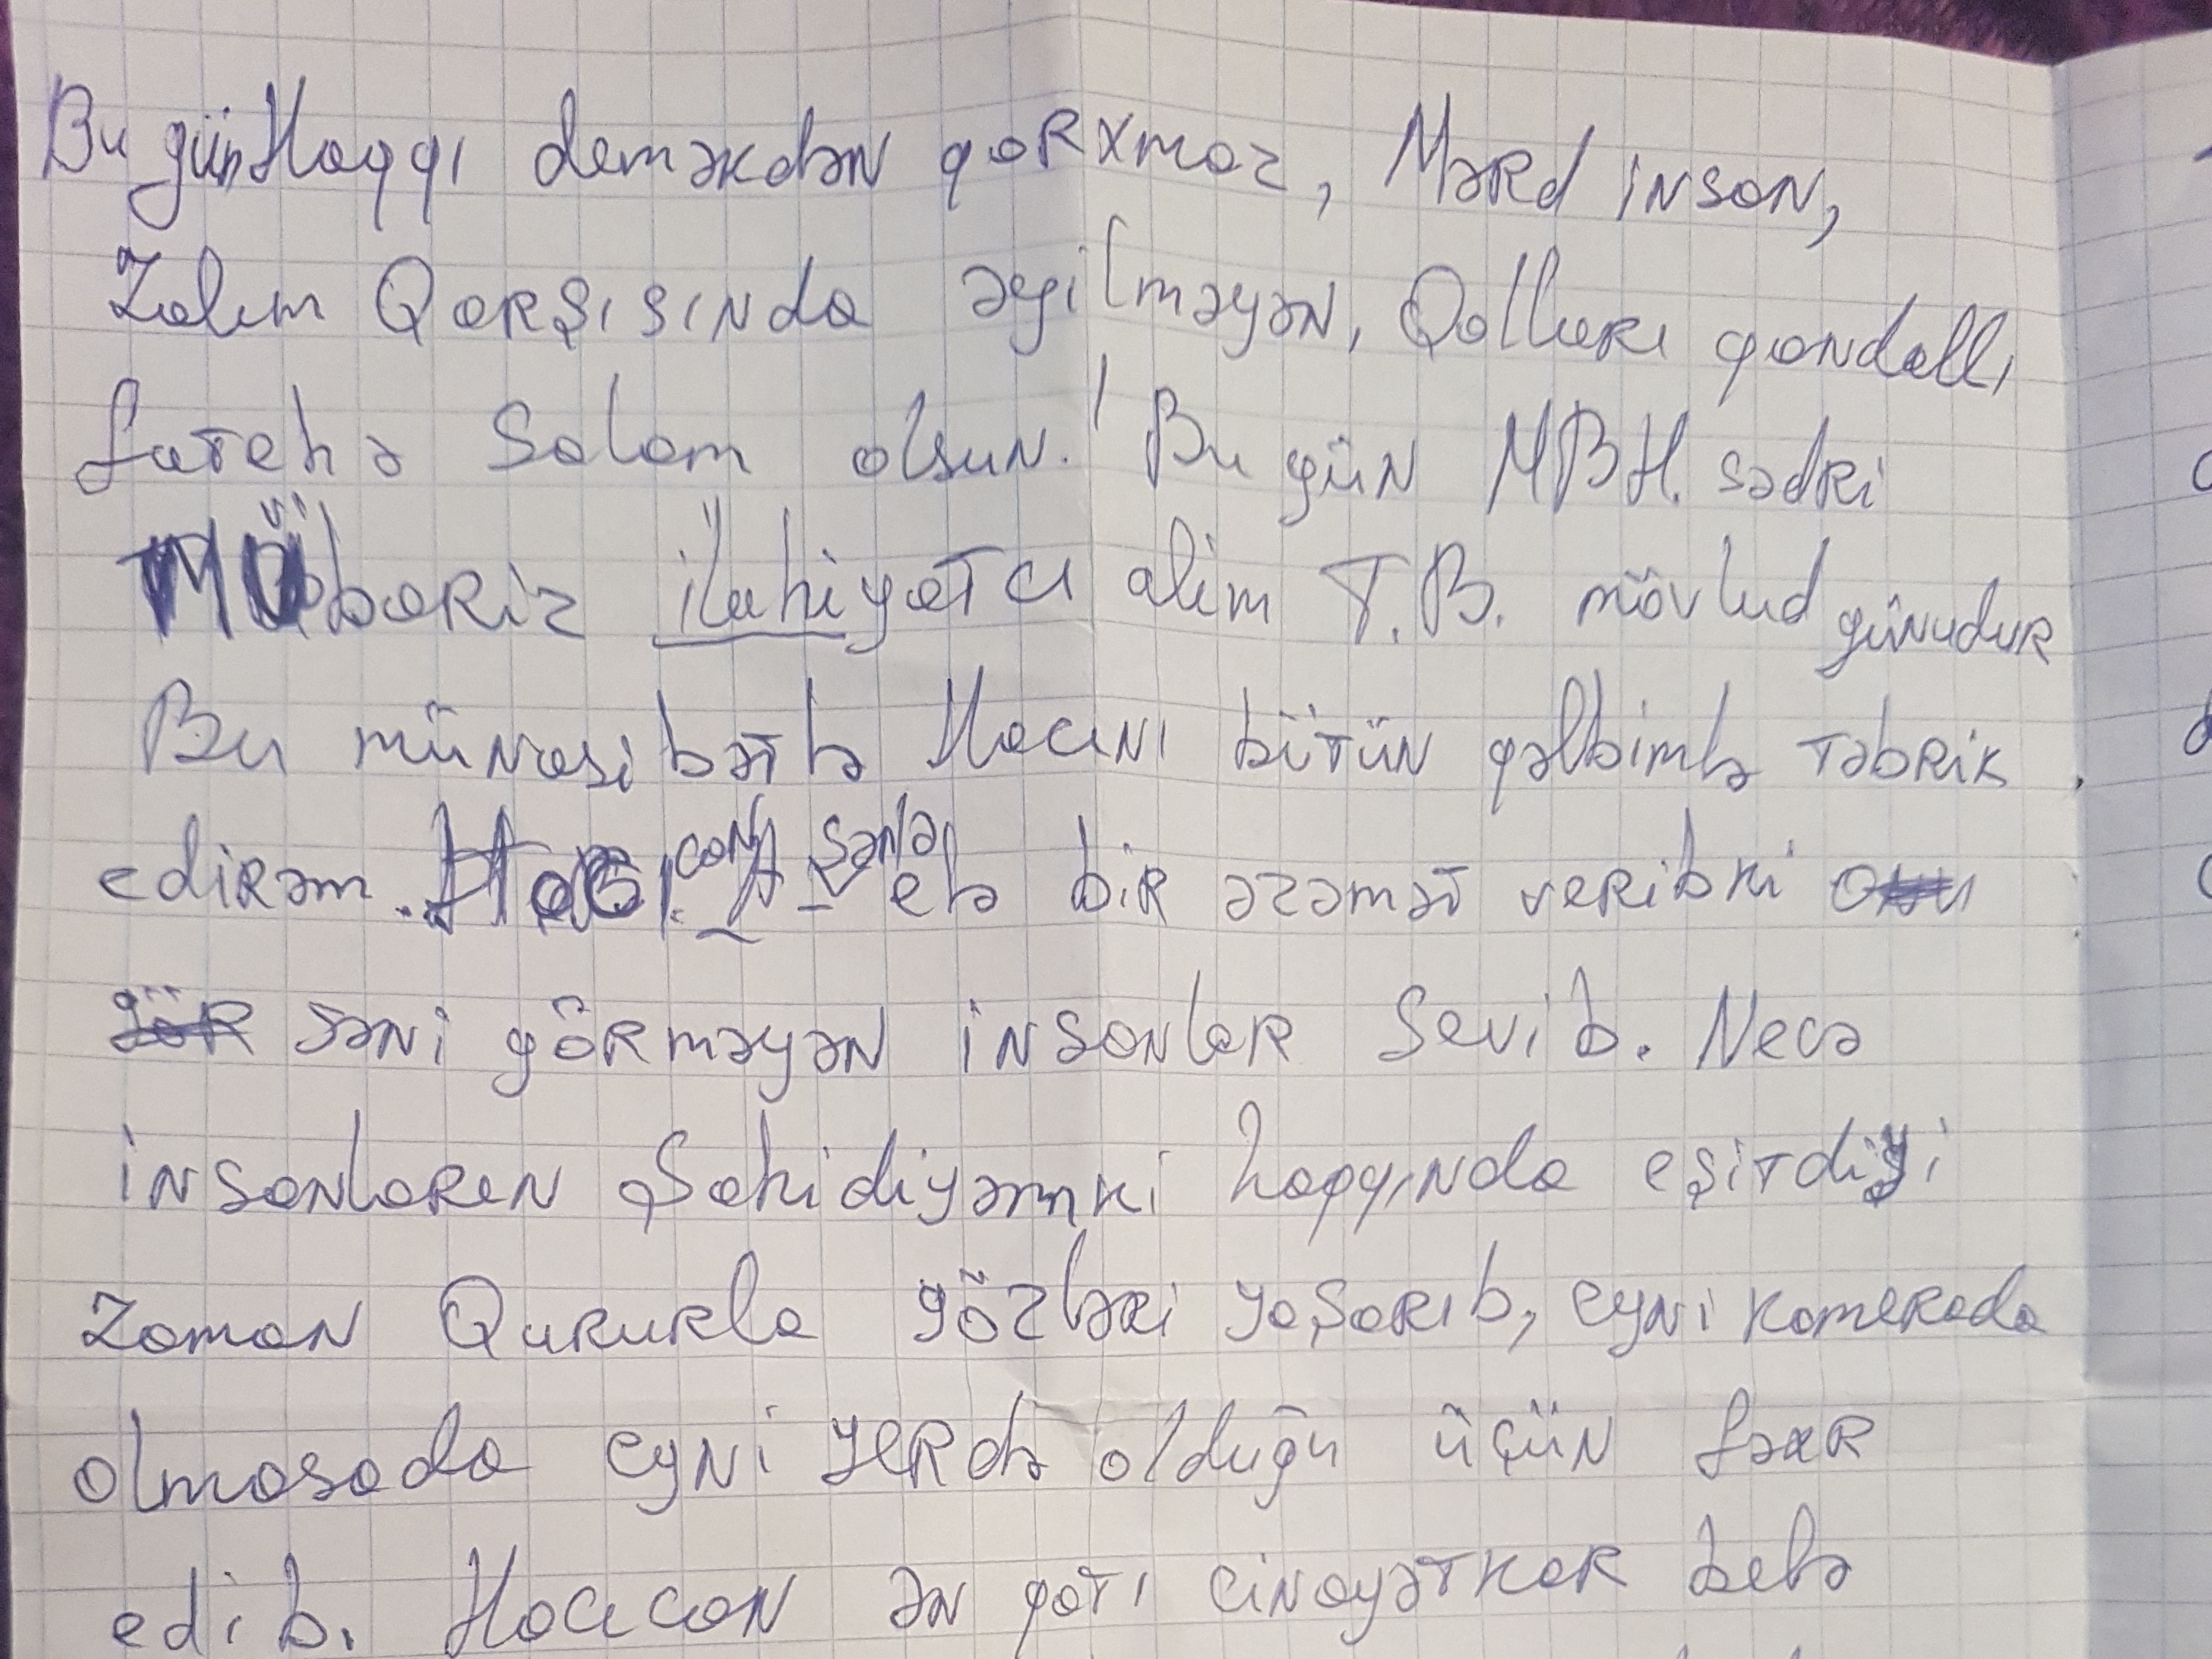 Bu gün Haqqı deməkdən qorxmaz, Mərd inson,
Zalım Qarşısında əyilməyən, Qolları qandallı
fatehə Salam olsun! Bu gün MBH. sədri
Mübariz ilahiyatcı alim T.B. mövlud günudur
Bu münasibətlə Hacını bütün qəlbimlə təbrik
edirəm. Hacı can A- sənə elə bir əzəmət veribki onu
gör səni görməyən insanlar Sevib. Necə
insanların Şahidiyəmki haqqında eşitdiyi
zaman Qururla gözləri yaşarıb, eyni kamerada
olmasada eyni yerdə olduğu üçün fəxr
edib. Hacıcan ən qatı cinayətkar belə